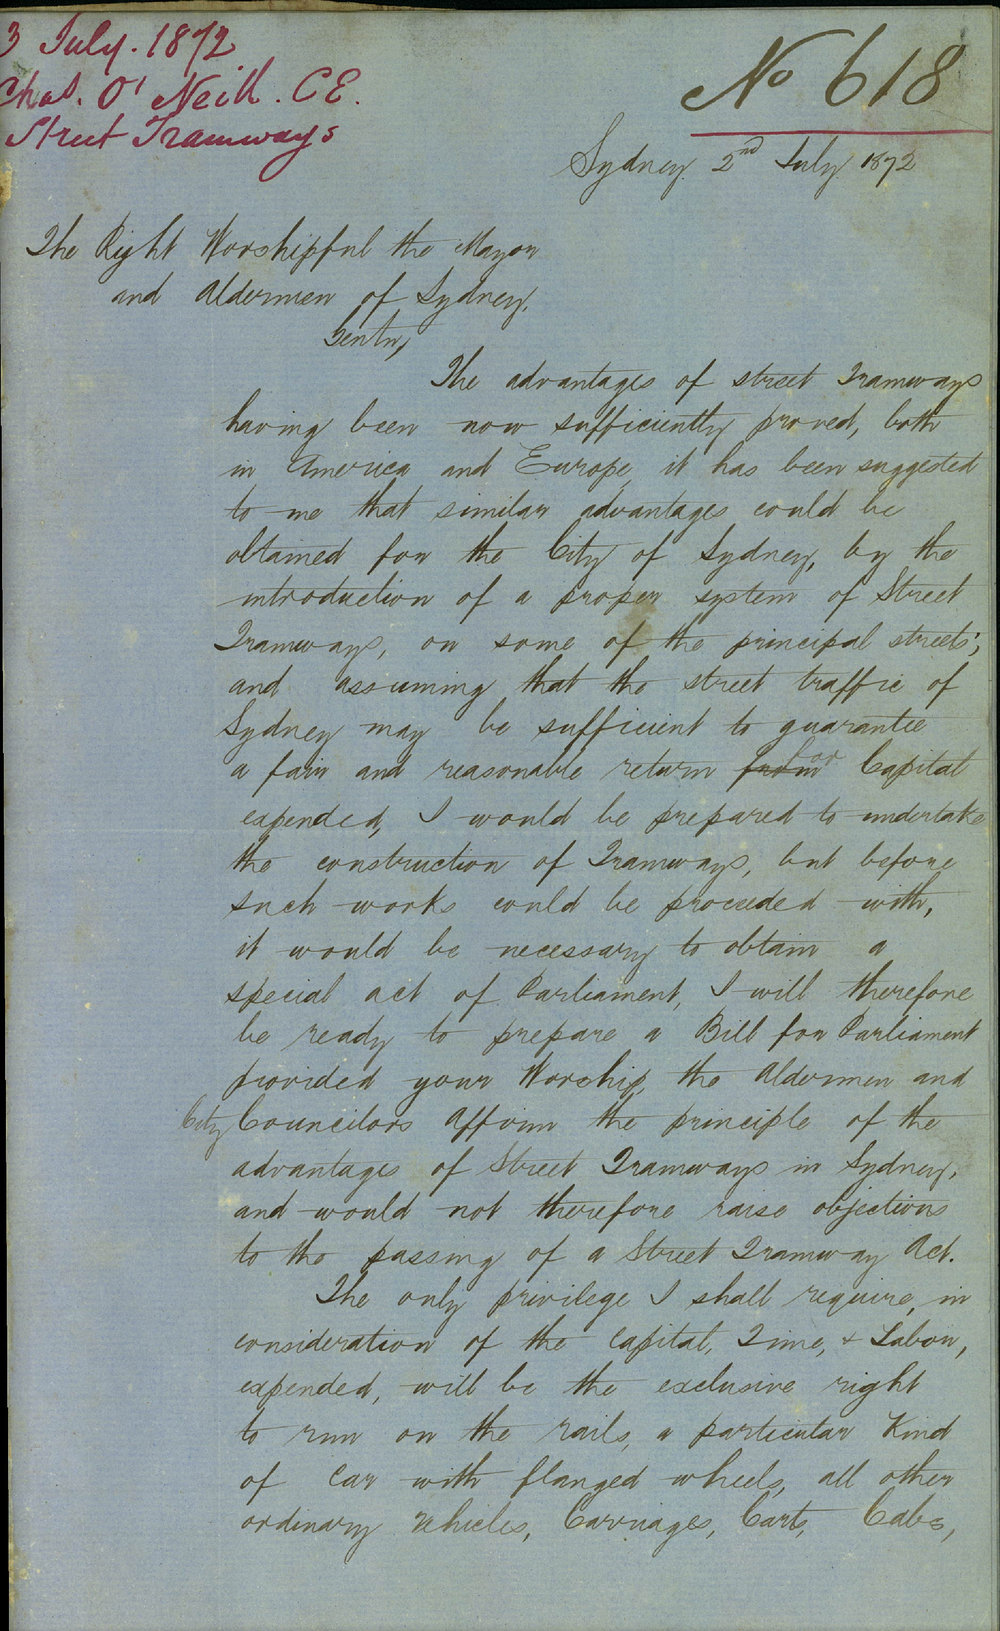 3 July. 1872
Chas. O'Neill. C E.
Street Tramways
No 618
Sydney. 2nd July 1872
The Right Worshipful the Mayor
and Aldermen of Sydney,
Gentn,
The advantages of street Tramways
having been now sufficiently proved, both
in America and Europe, it has been suggested
to me that similar advantages could be
obtained for the City of Sydney, by the
introduction of a proper system of Street
Tramways, on some of the principal streets;
and assuming that the street traffic of
Sydney may be sufficient to guarantee
a fair and reasonable return from for Capital
expended, I would be prepared to undertake
the construction of Tramways, but before
such works could be proceeded with,
it would be necessary to obtain a
special act of Parliament, I will therefore
be ready to prepare a Bill for Parliament
provided your Worship, the Aldermen and
City Councilors affirm the principle of the
advantages of Street Tramways in Sydney,
and would not therefore raise objections
to the passing of a Street Tramway Act.
The only privilege I shall require, in
consideration of the Capital, Time, & Labor,
expended, will be the exclusive right
to run on the rails, a particular Kind
of Car with flanged wheels, all other
ordinary vehicles, Carriages, Carts, Cabs,